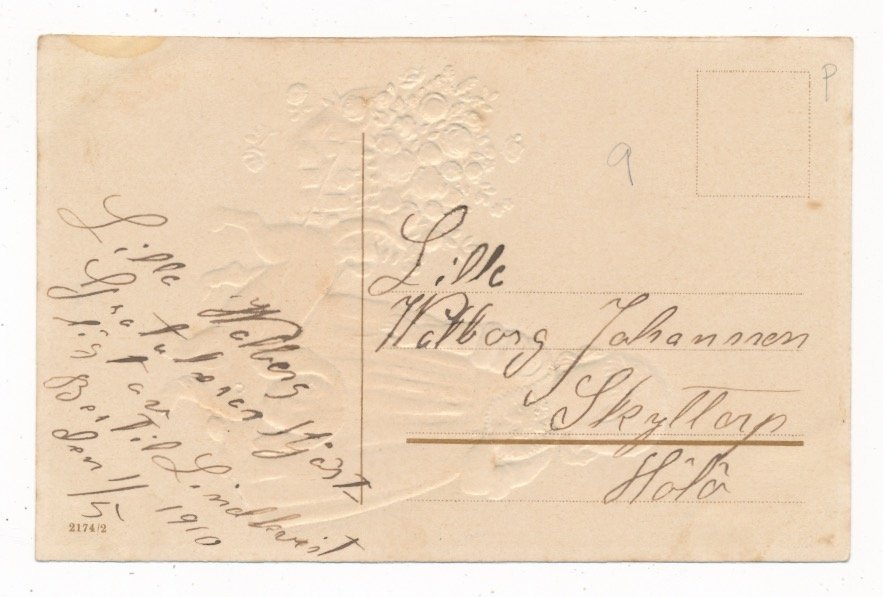 Lille Walborg
Gratuleras Hjärt-
ligt av
Bertil Lindkvist
Den 1/5 1910
2174/2
P
9
Lille
Walborg Johansson
Skyttorp
Hölö